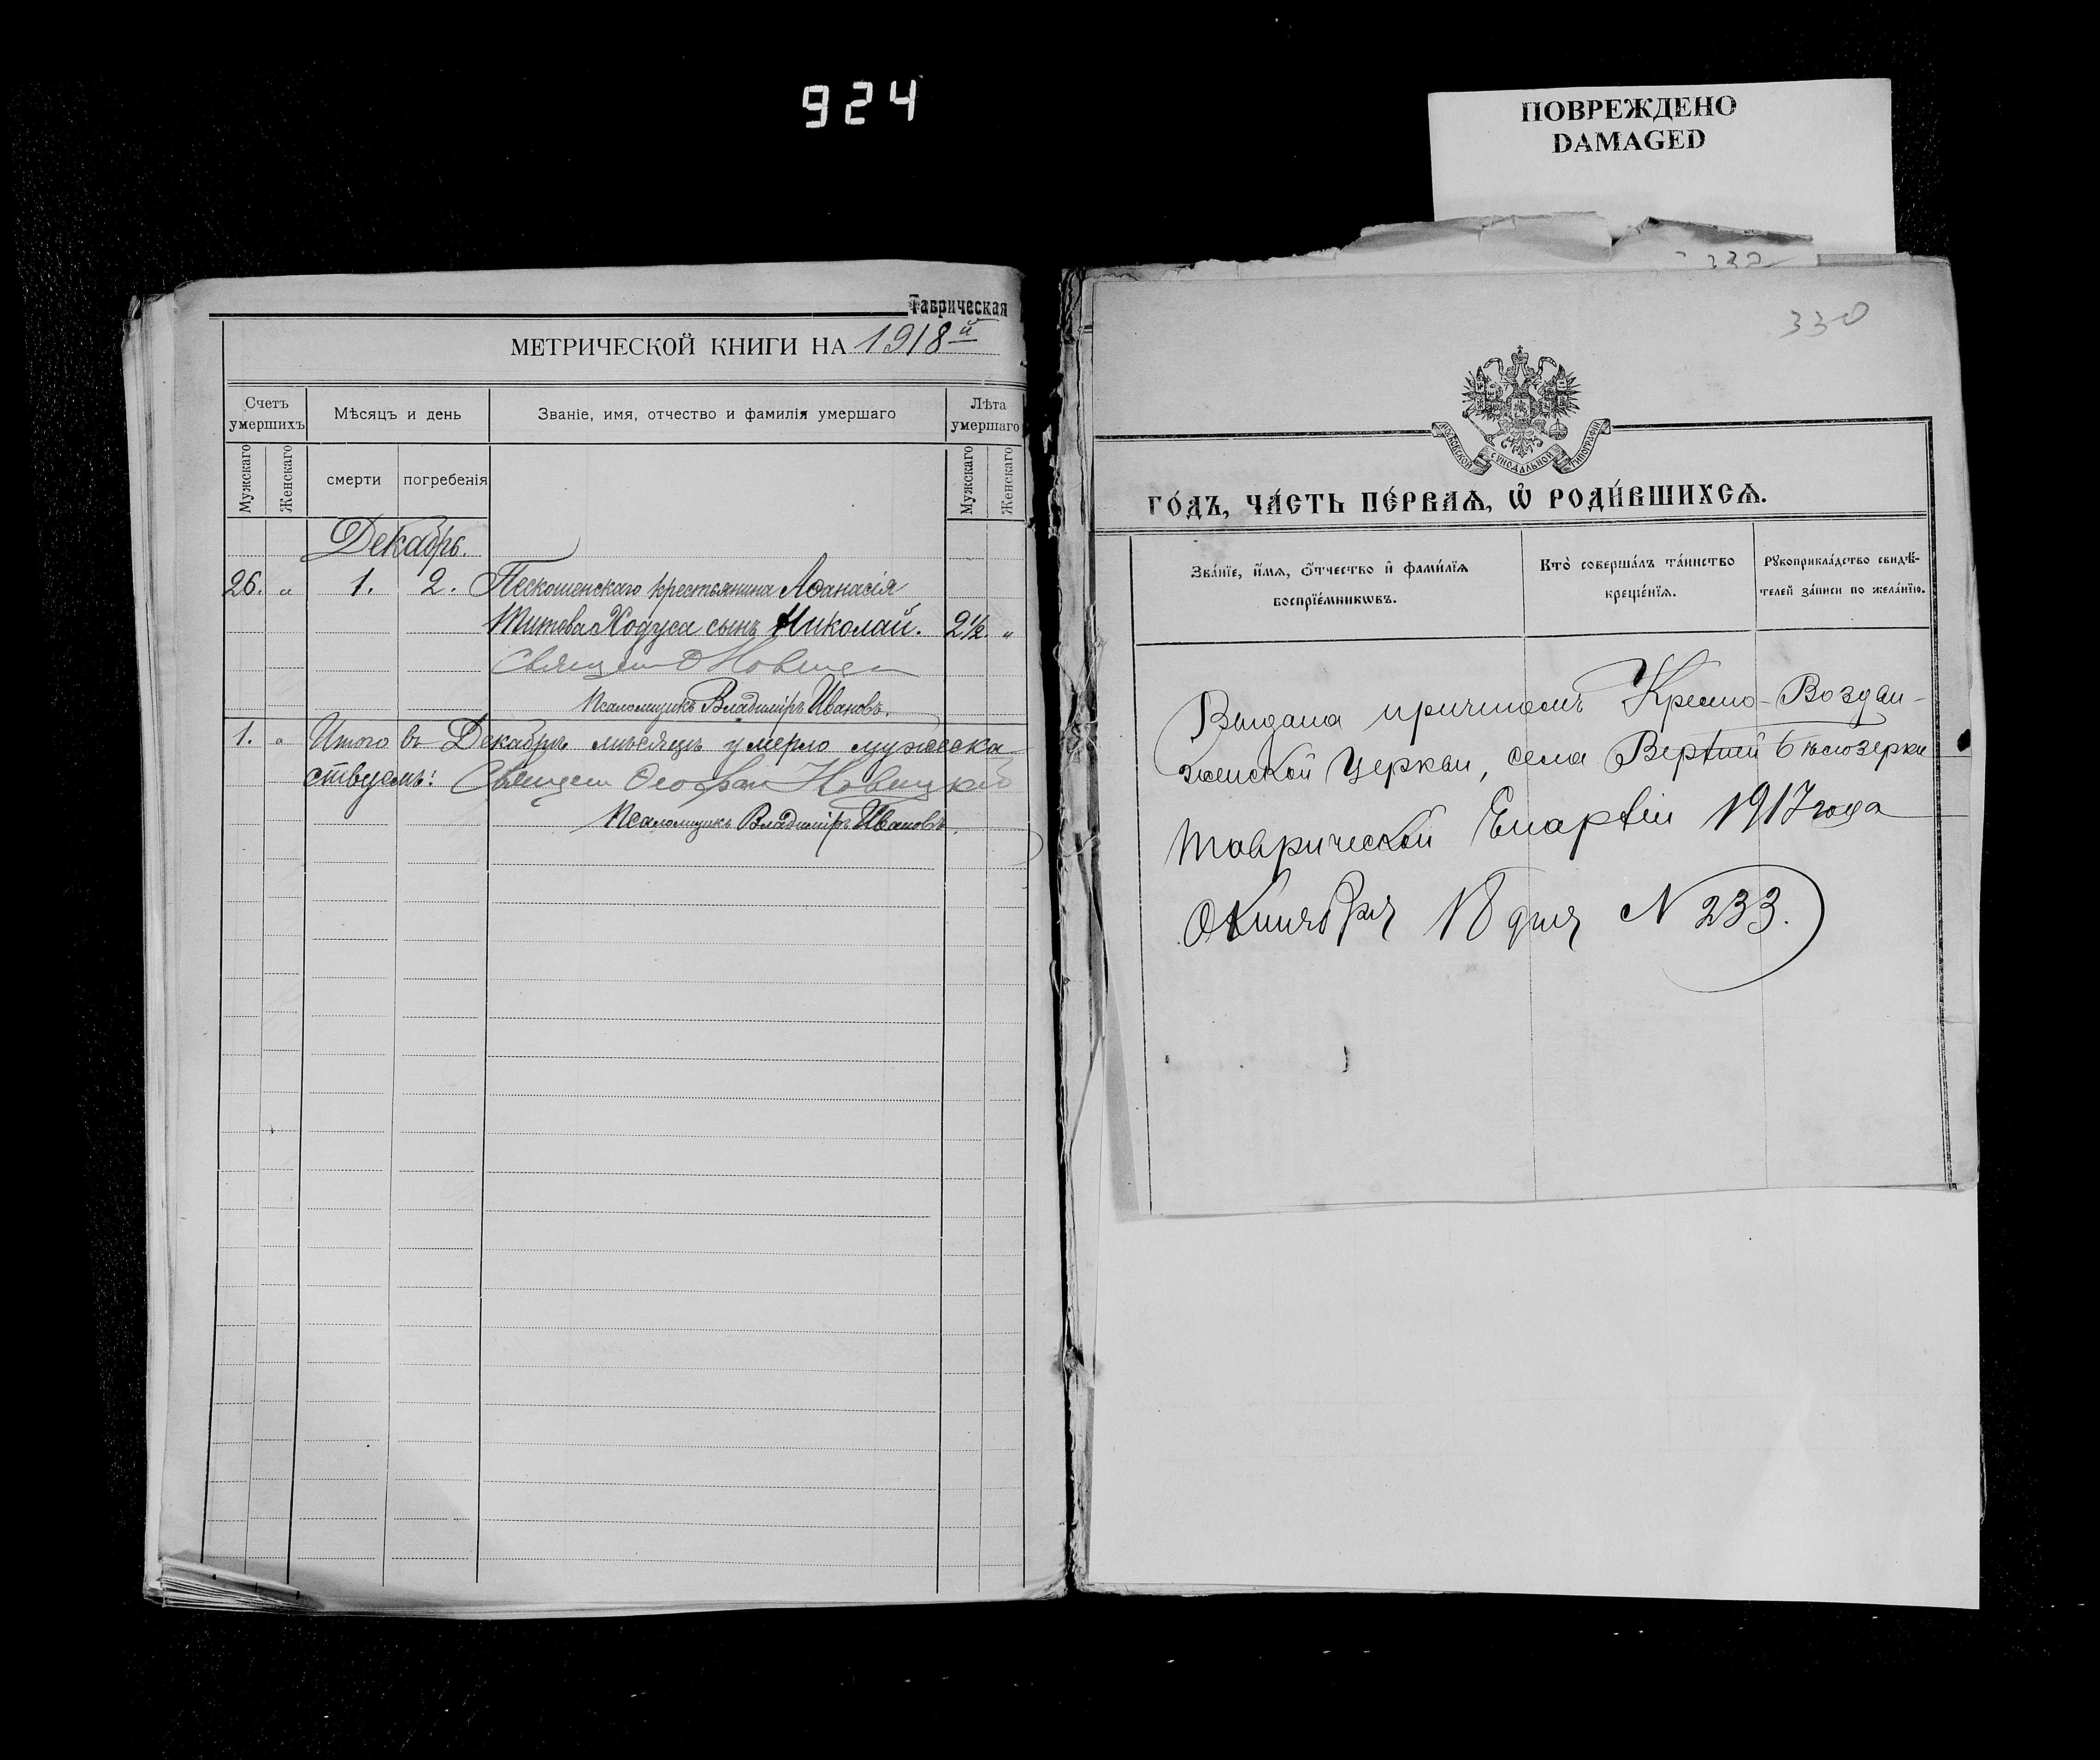 924
ПОВРЕЖДЕНО
DAMAGED
Таврическая
МЕТРИЧЕСКОЙ КНИГИ НА 1918й
Счетъ умершихъ
Мѣсяцъ и день
Званіе, имя, отчество и фамилія умершаго
Лѣта умершаго
Мужскаго
Женскаго
смерти
погребенія
Мужскаго
Женскаго
Декабрь.
26. „ 1. 2. Пескошенскаго крестьянина Аѳанасія
Титова Ходуса сынъ Николай. 2½. „
Священ Ѳ Новиц
Псаломщикъ Владиміръ Ивановъ.
1. „ Итого въ Декабрѣ мѣсяцѣ умерло мужеска
Священ Ѳеофан Новицкій
Псаломщикъ Владиміръ Ивановъ.
330
330
МОСКОВСКОЙ СѴНОДАЛЬНОЙ ТИПОГРАФІИ
ГО́ДЪ, ЧА́СТЬ ПЕ́РВАѦ, Ѽ РОДИ́ВШИХСѦ.
Зва́нїе, и҆́мѧ, ѻ҆́тчество и҆ фами́лїѧ
воспрїе́мникѡвъ.
Кто̀ соверша́лъ та́инство
креще́нїѧ.
Рꙋкоприкла́дство свидѣ́-
телей за́писи по жела́нїю.
Выдана причтомъ Кресто-Воздви-
женской Церкви, села Верхней Бѣлозерки
Таврической Епархіи 1917 года
Октября 18 дня № 233.